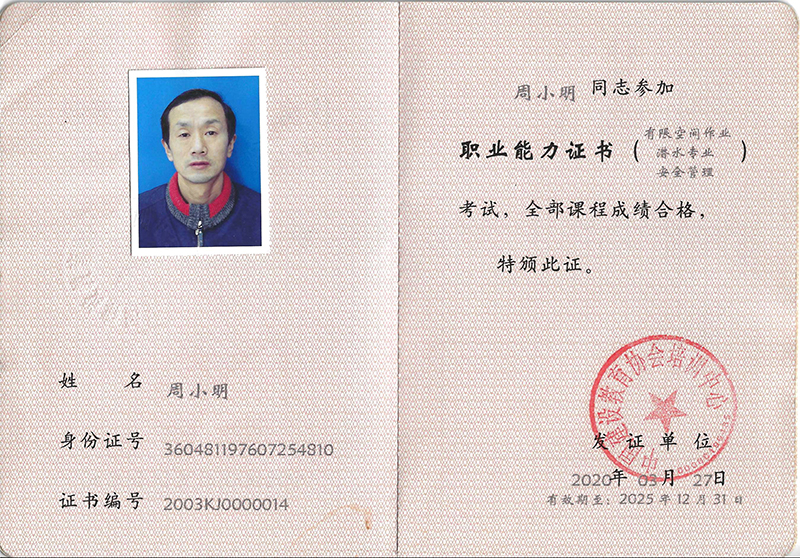 姓 名 周小明
身份证号 360481197607254810
证书编号 2003KJ0000014
周小明 同志参加
职业能力证书（有限空间作业
潜水专业
安全管理）
考试，全部课程成绩合格，
特颁此证。
中国建设教育协会培训中心
发证单位
2020年 03月 27日
有效期至：2025 年 12 月 31 日